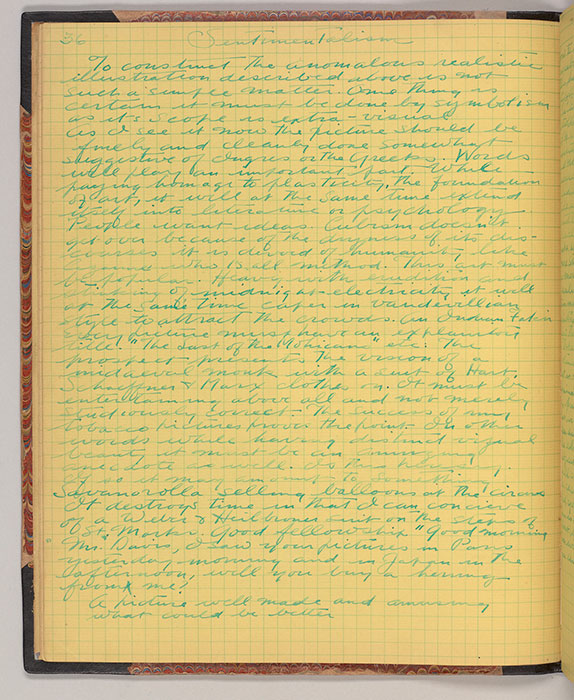 36 Sentimentalism
To construct the anomalous realistic
illustration described above is not
such a simple matter. One thing is
certain it must be done by symbolism
as it's scope is extra-visual
As I see it now the picture should be
finely and cleanly done somewhat
suggestive of Ingres or the Greeks. Words
will play an important part. While
paying homage to plasticity, the foundation
of art, it will at the same time extend
itself into literature or psychology.
People want ideas. Cubism doesn't
get over because of the dryness of its dis-
courses it is devoid of humanity like
who is all method. This art must
be popular. with and
of midnight electricity it will
at the same time caper in vaudevillian
style to attract the crowds. An Indian
Every picture must have an explanatory
title. "The Last of the Mohicans" etc: The
prospect presents the vision of a
mediaeval monk with a suit of Hart
Schaffner & Marx clothes on. It must be
entertaining above all and not merely
studiously correct. The success of my
tobacco pictures proves the point. In other
words while having distinct visual
beauty it must be an amusing
anecdote as well.
it may amount to something.
Savanorolla selling balloons at the circus
It destroys time in that I can concieve
of a Weber & Heilbroner suit on the steps of
St. Marks. Good fellowship. "Good morning
Mr. Davis, I saw your pictures in Paris
yesterday morning and in Japan in the
afternoon, will you buy a herring
from me?
A picture well made and amusing
what could be better